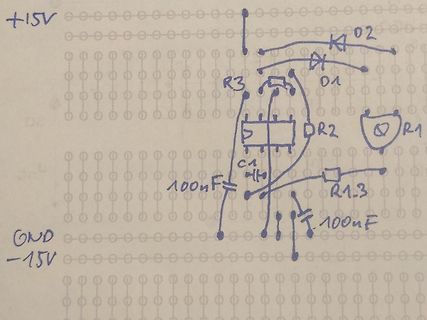 +15V
D2
D1
R3
R2
R1
C1
100nF
R1.3
100nF
GND
-15V